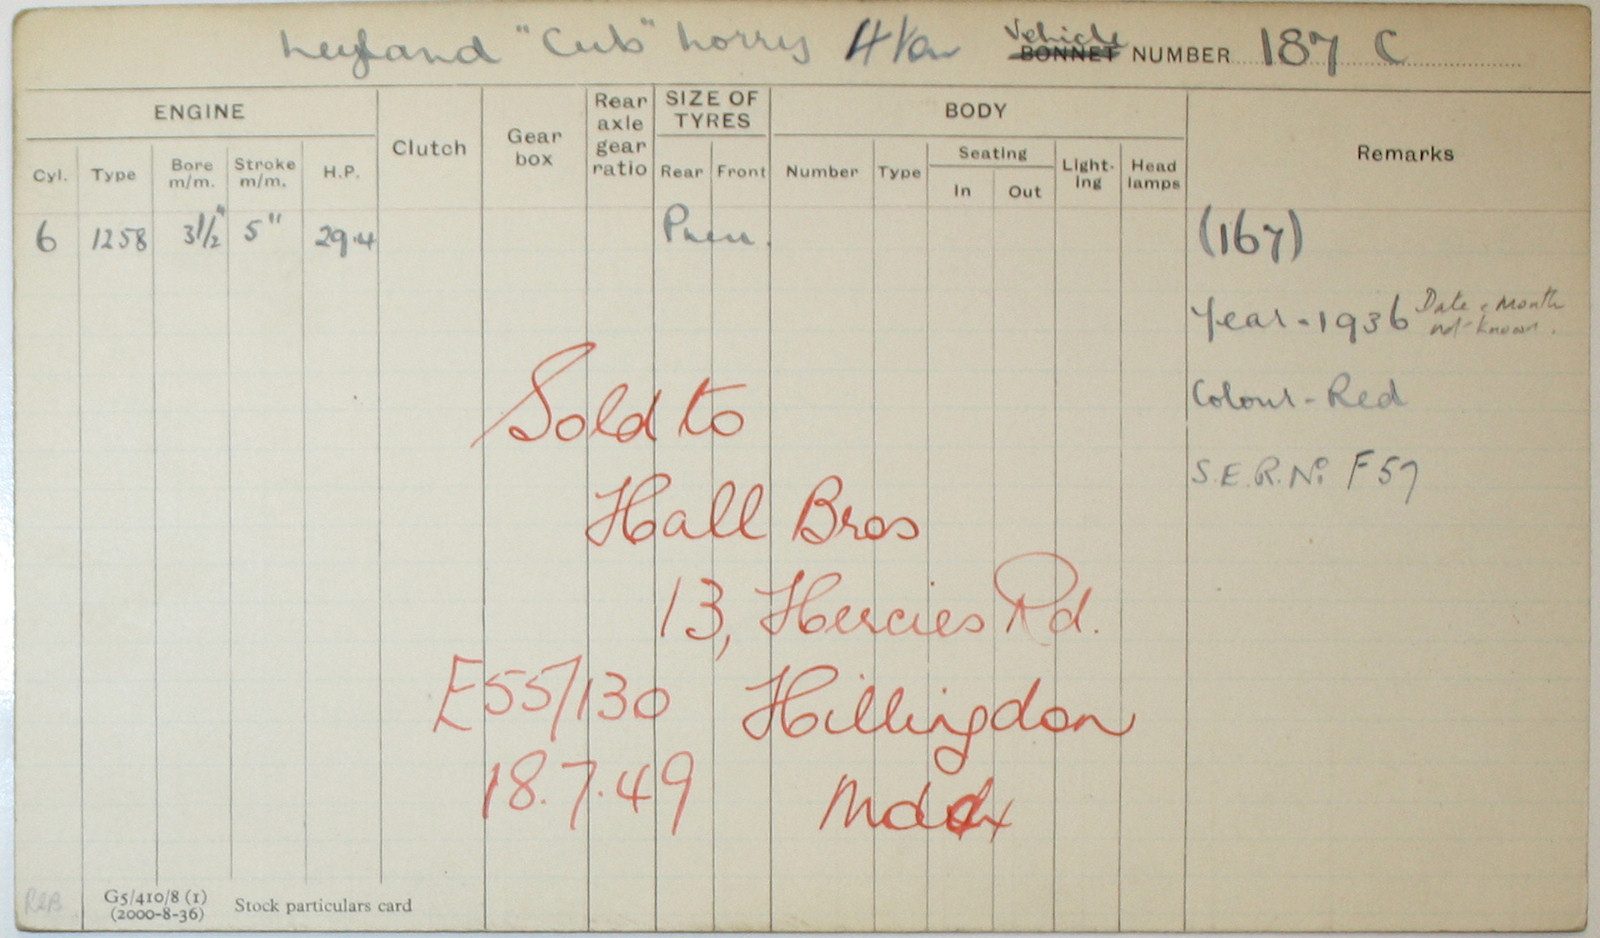 Leyland "Cub" Lorry 4 ton Vehicle BONNET NUMBER 187 C
ENGINE Clutch Gear box Rear axle gear ratio SIZE OF TYRES BODY Remarks
Cyl. Type Bore m/m. Stroke m/m. H.P. Rear Front Number Type Seating In Out Light-ing Head lamps
6 1258 3½" 5" 29.4 Pneu. (167)
Year - 1936 Date & Month not known.
Colour - Red
S.E.R. No. F57
Sold to
Hall Bros
13, Hercies Rd.
E55/130 Hillingdon
18.7.49 Mddx
G5/410/8 (1)
(2000-8-36)
Stock particulars card